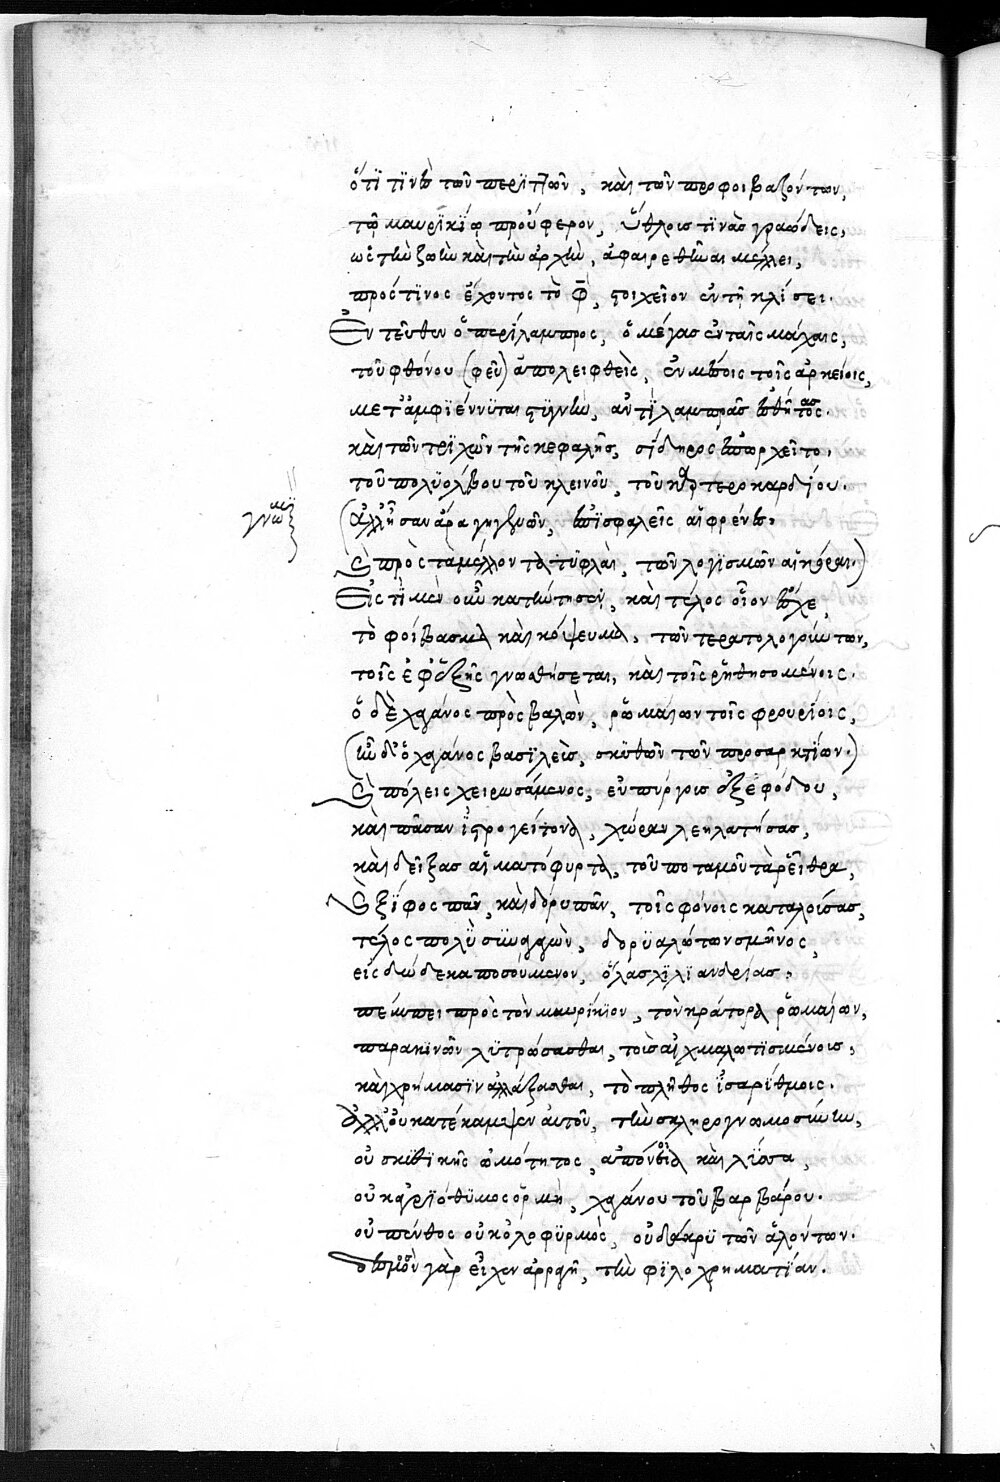 ὅτϊ τϊνὲς τῶν περϊττῶν, καὶ τῶν προφοιβαζόντων,
τῷ μαυρϊκίῳ προὔφερον, ὕθλοις τϊνὰς γραώδεις,
ὡς τὴν ζωὴν καὶ τὴν ἀρχὴν, ἀφαιρεθῆναι μέλλει,
πρός τϊνος ἔχοντος τὸ φ̄, στοιχεῖον ἐν τῇ κλίσει.
Ἐντεῦθεν ὁ περίλαμπρος, ὁ μέγας ἐν ταῖς μάχαις,
τοῦ φθόνου (φεῦ) ἀπολειφθεὶς, ἐν μέσοις τοῖς ἀρκείοις,
μετἀμφϊέννϋται στϋγνὴν, ἀντὶ λαμπρᾶς ἐσθῆτος.
καὶ τῶν τρϊχῶν τῆς κεφαλῆς, σίδηρος κατήρχετο,
τοῦ πολϋόλβου τοῦ κλεινοῦ, τοῦ καρτεροκαρδίου.
γνωμϊ
(ἀλλ' ἦσαν ἄρα γηγενῶν, ἐπϊσφαλεῖς αἱ φρένες,
καὶ πρὸς τὰ μέλλοντα τϋφλαὶ, τῶν λογϊσμῶν αἱ κόραι.)
Εἰς τί μὲν οὖν κατήντησεν, καὶ τέλος οἷον ἔσχε,
τὸ φοίβασμα καὶ κόμψευμα, τῶν τερατολογούντων,
τοῖς ἐφεξῆς γνωσθήσεται, καὶ τοῖς ῥηθησομένοις.
ὁ δὲ χαγάνος προσβαλὼν, ῥωμαίων τοῖς φρουρίοις,
(ἦν δ' ὁ χαγάνος βασϊλεὺς, σκυθῶν τῶν προσαρκτίων.)
καὶ πόλεις χειρωσάμενος, εὐπύργους ἐξ ἐφόδου,
καὶ πᾶσαν ἰστρογείτονα, χώραν λεηλατήσας,
καὶ δείξας αἱματόφυρτα, τοῦ ποταμοῦ τὰ ῥεῖθρα,
καὶ ξίφος πᾶν, καὶ δόρυ πᾶν, τοῖς φόνοις κατα
τέλος πολὺ συναγαγὼν, δορϋαλώτων σμῆνος,
εἰς δώδεκα ποσούμενον, ὅλας χϊλϊανδρίας,
πέμπει πρὸς τὸν μαυρίκϊον, τὸν κράτορα ῥωμαίων,
παρακϊνῶν λϋτρώσασθαι, τοὺς αἰχμαλωτϊσμένους,
καὶ χρήμασϊν ἀλλάξασθαι, τὸ πλῆθος ἰσαρίθμοις.
Ἀλλ' οὐ κατέκαμψεν αὐτοῦ, τὴν σκληρογνωμοσύνην,
οὐ σκϋθϊκῆς ὠμότητος, ἀπόνοια καὶ λύσσα,
οὐ καρϊόθϋμος ὁρμὴ, χαγάνου τοῦ βαρβάρου.
οὐ πένθος οὐκ ὀλοφϋρμὸς, οὐ δάκρϋ τῶν ἁλόντων.
δεσμὸν γὰρ εἶχεν ἀρραγῆ, τὴν φϊλοχρηματίαν.